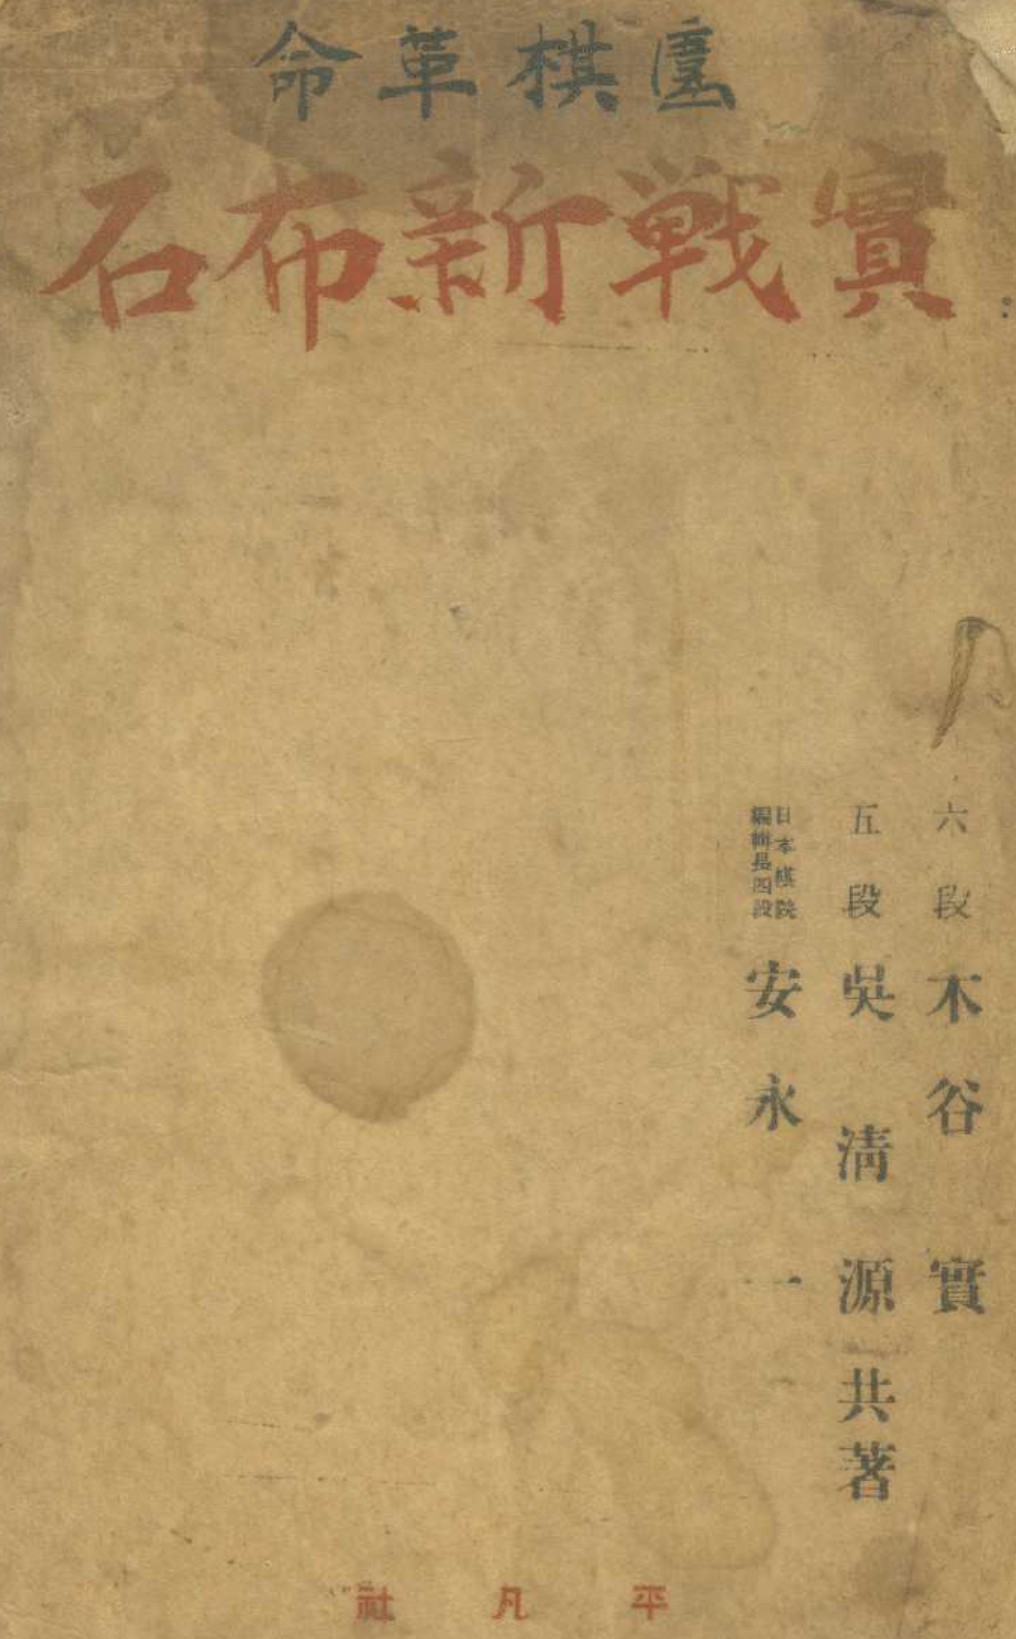 圍棋革命
實戦新布石
六段 木谷實
五段 吳清源 共著
日本棋院
編輯長四段
安永一
平凡社